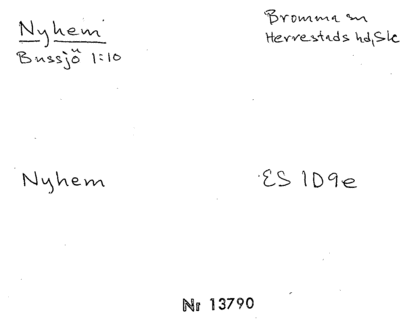 Nyhem
Bussjö 1:10
Bromma sn
Herrestads hd, Sk
Nyhem
ES 1D9e
Nr 13790